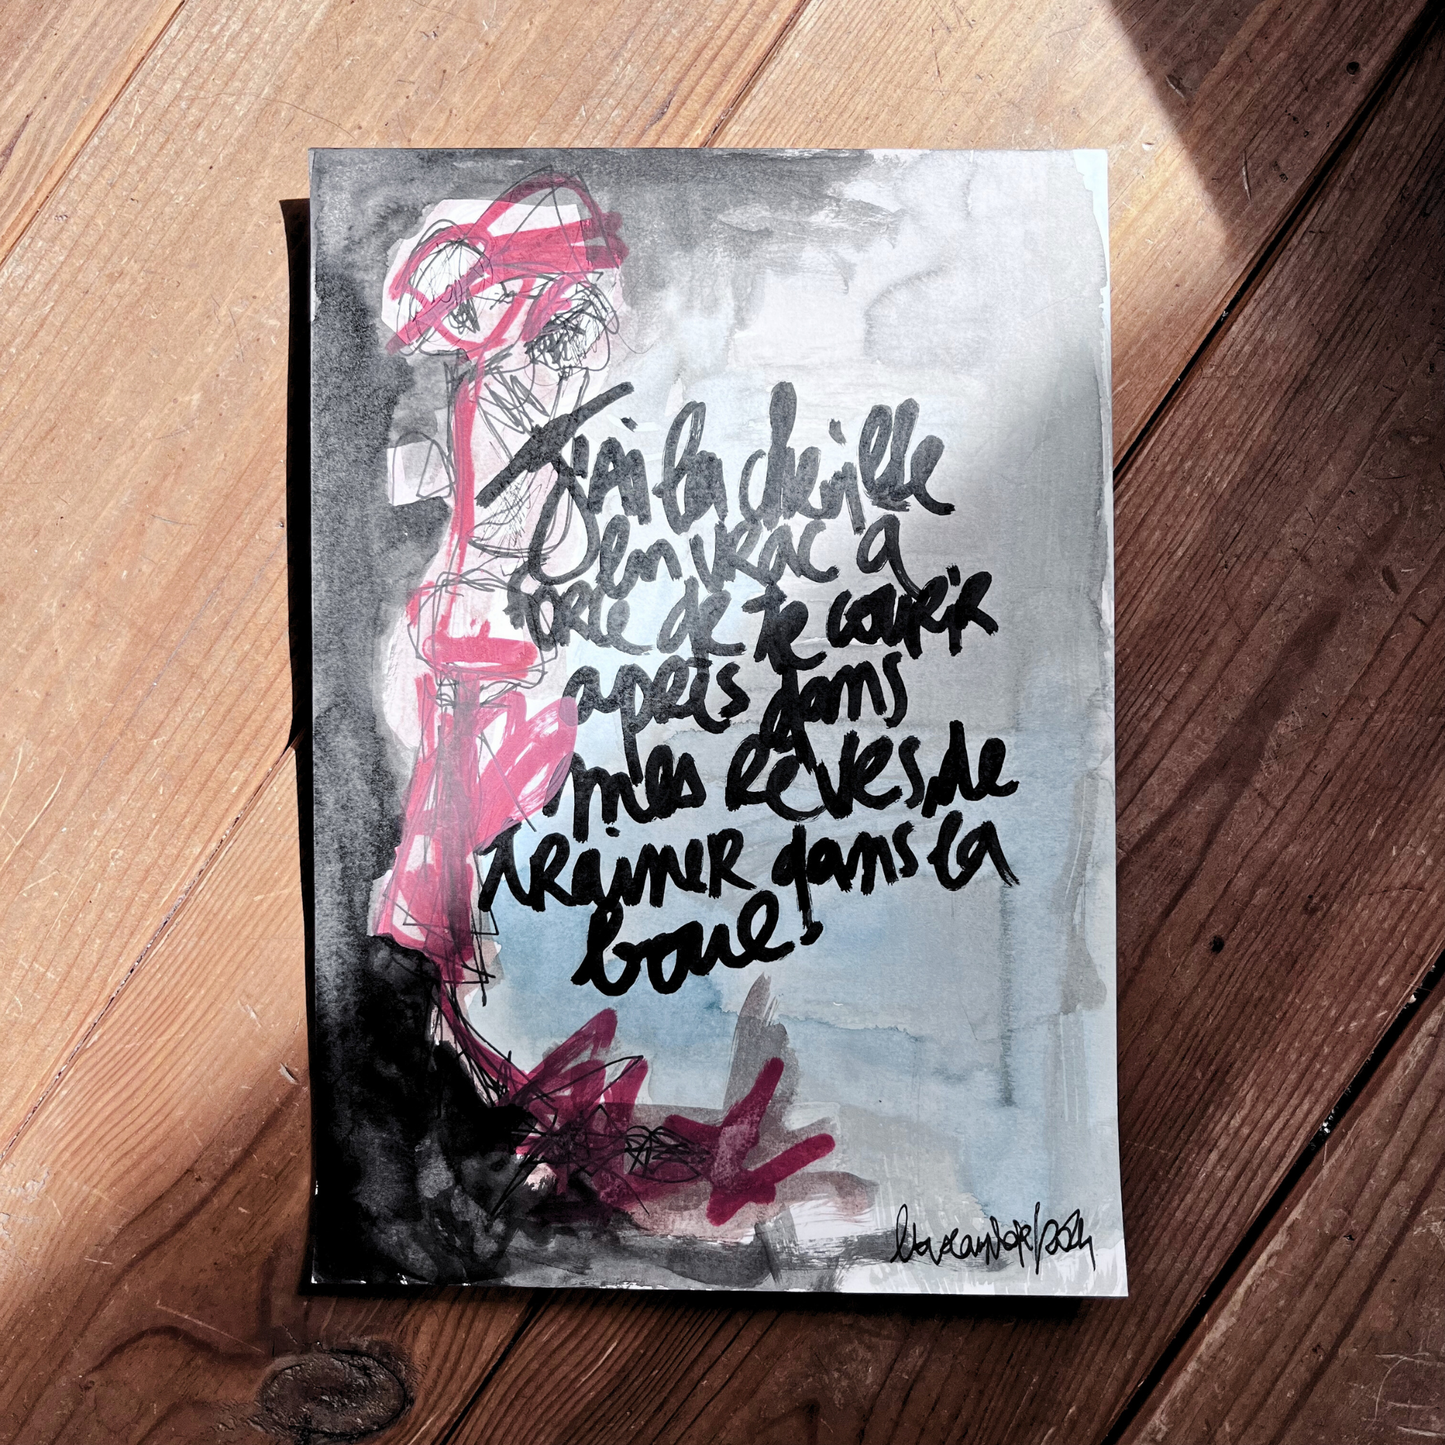 J'ai la cheville
en vrac a
force de te courir
après dans
mes rêves, de
trainer dans la
boue.